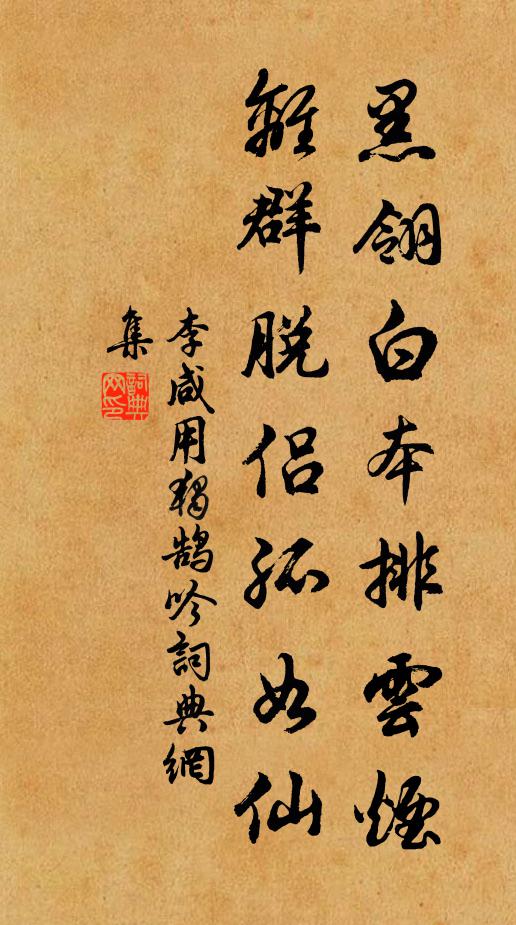 黑翎白本排雲煙
離群脫侶孤如仙
李咸用獨鵠吟詞典網
集
詞典
网印